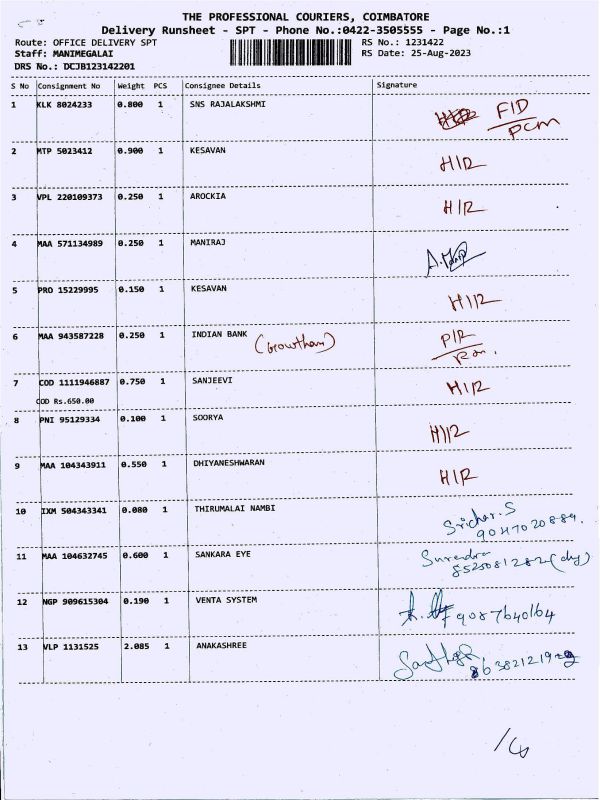 THE PROFESSIONAL COURIERS, COIMBATORE
Delivery Runsheet - SPT - Phone No.:0422-3505555 - Page No.:1
Route: OFFICE DELIVERY SPT RS No.: 1231422
Staff: MANIMEGALAI RS Date: 25-Aug-2023
DRS No.: DCJB123142201
S No Consignment No Weight PCS Consignee Details Signature
1 KLK 8024233 0.800 1 SNS RAJALAKSHMI F/D
PCM
2 MTP 5023412 0.900 1 KESAVAN H/R
3 VPL 220109373 0.250 1 AROCKIA H/R
4 MAA 571134989 0.250 1 MANIRAJ
5 PRO 15229995 0.150 1 KESAVAN H/R
6 MAA 943587228 0.250 1 INDIAN BANK (Gowtham) P/R
7 COD 1111946887 0.750 1 SANJEEVI H/R
COD Rs.650.00
8 PNI 95129334 0.100 1 SOORYA H/R
9 MAA 104343911 0.550 1 DHIYANESHWARAN H/R
10 IXM 504343341 0.080 1 THIRUMALAI NAMBI
11 MAA 104632745 0.600 1 SANKARA EYE Surendra
8525081282
12 NGP 909615304 0.190 1 VENTA SYSTEM 9087640164
13 VLP 1131525 2.085 1 ANAKASHREE